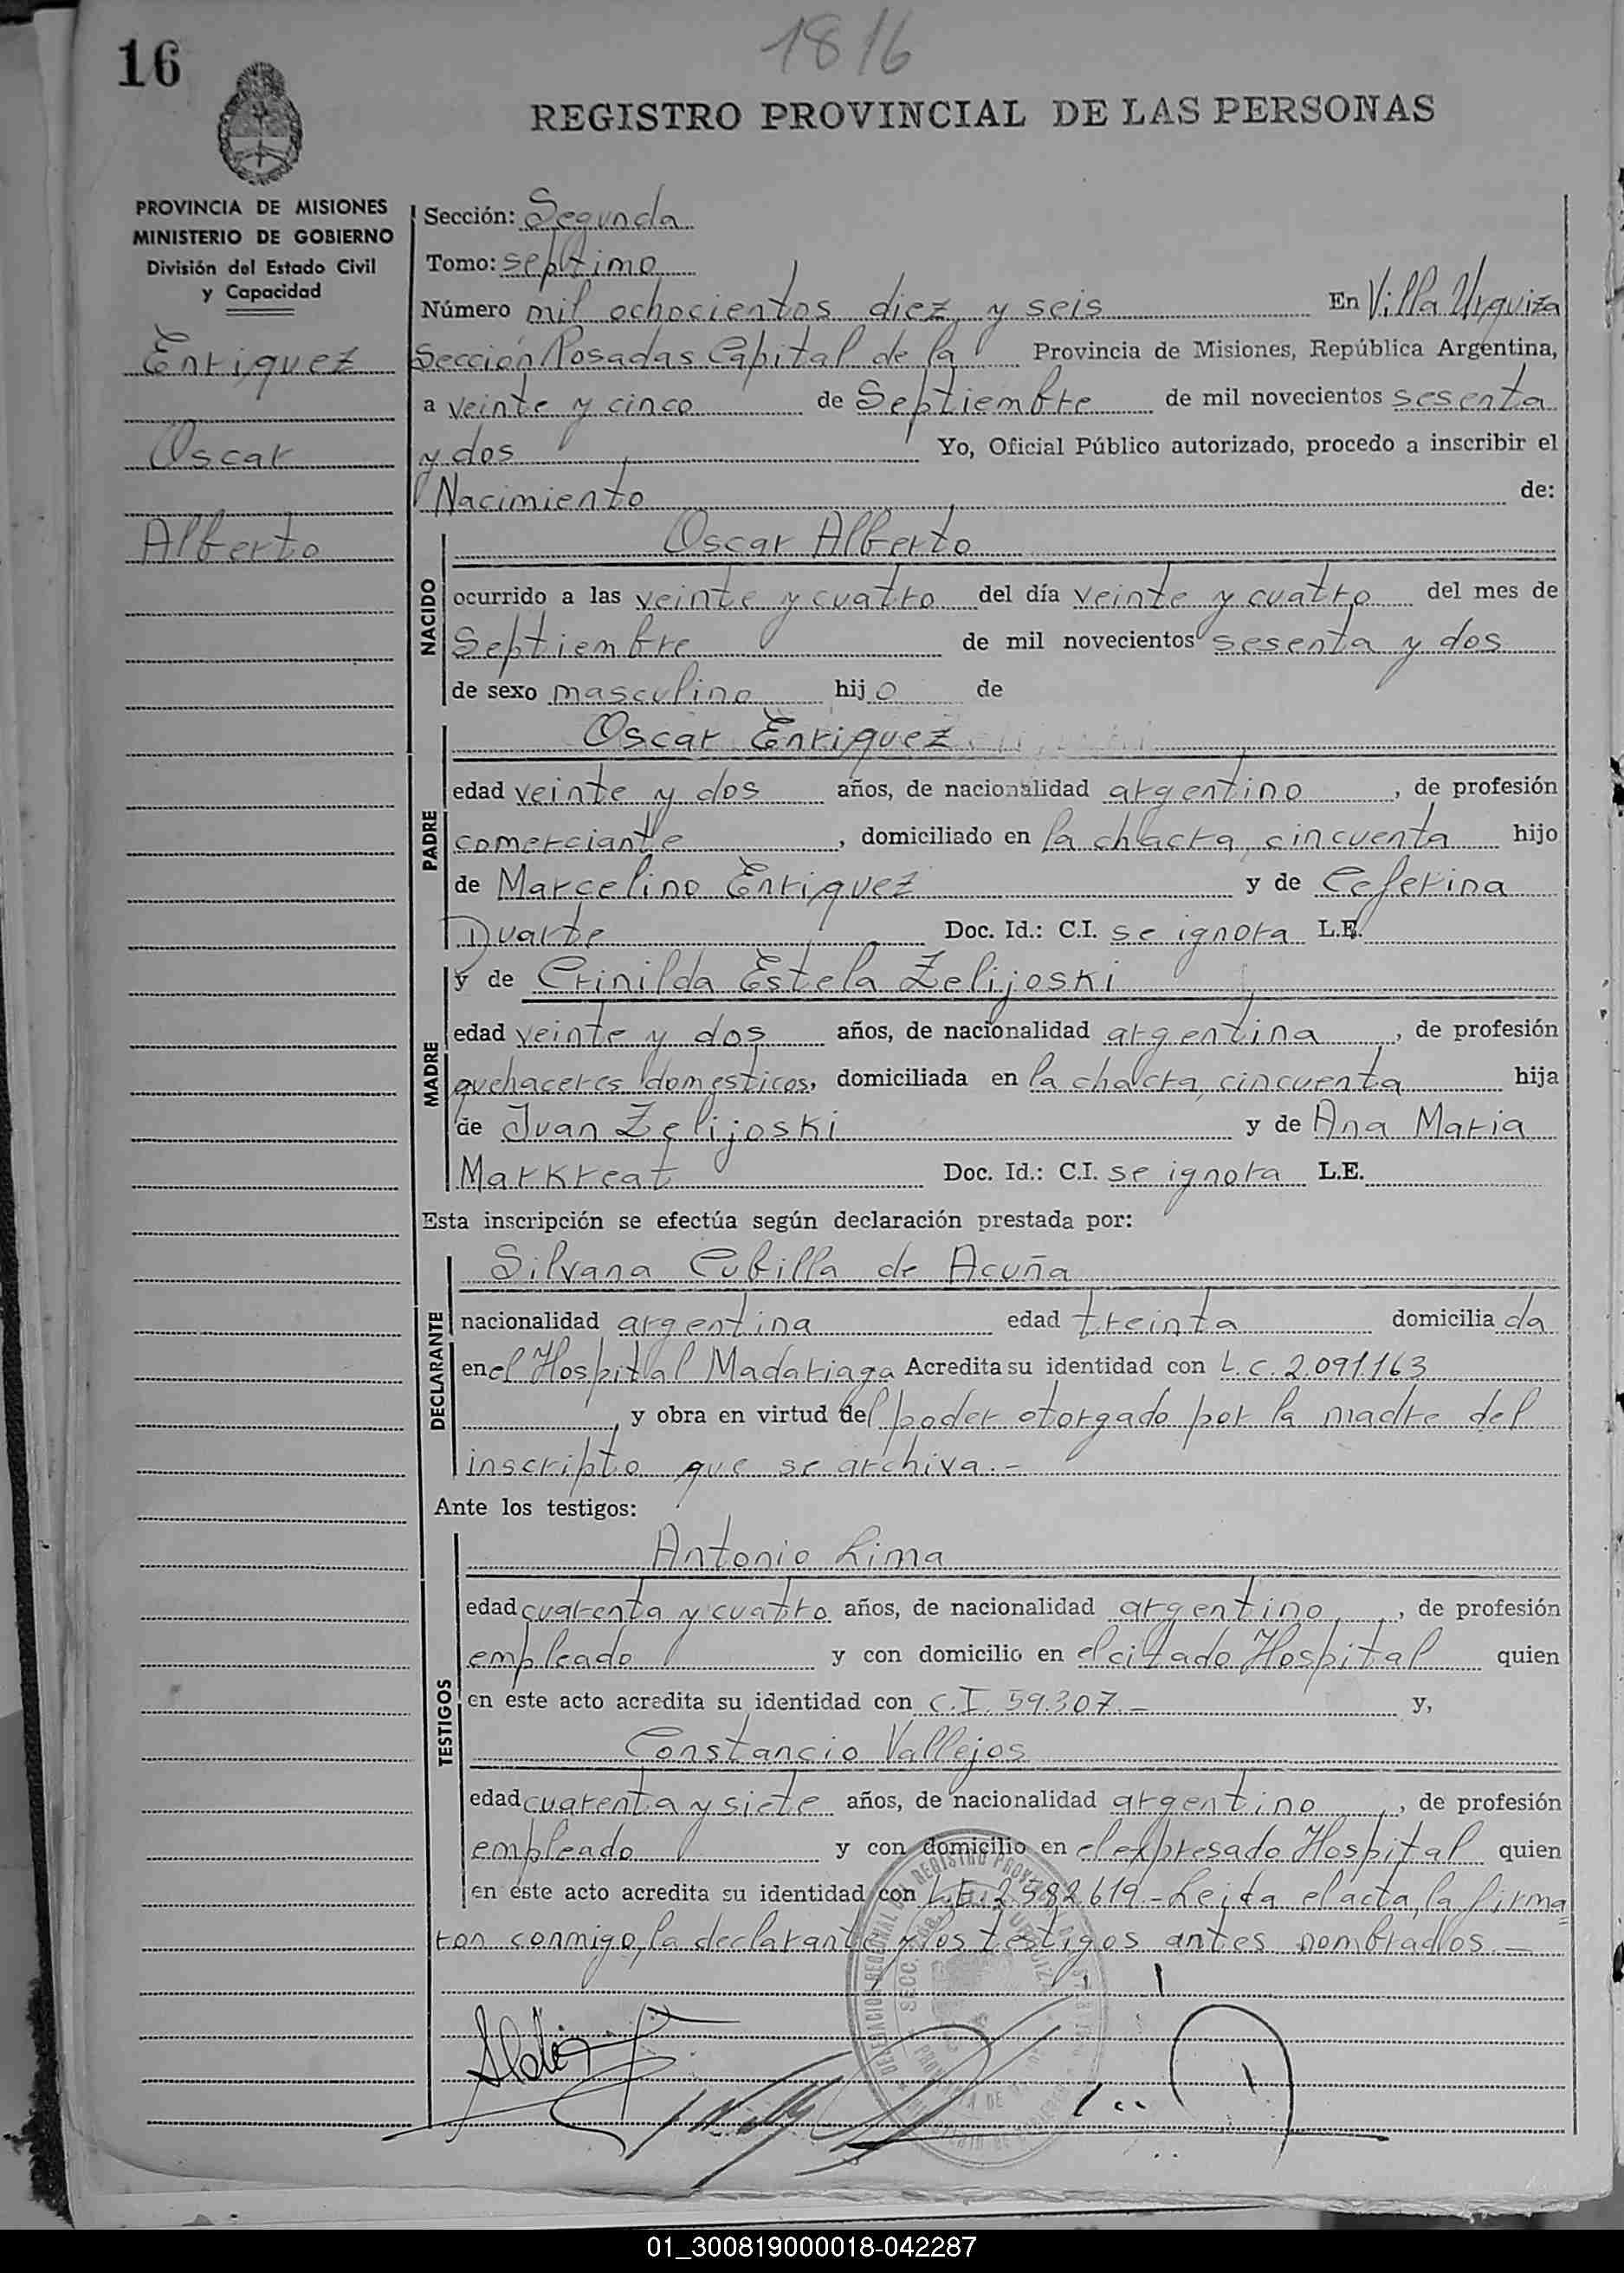 16
1816
REGISTRO PROVINCIAL DE LAS PERSONAS
PROVINCIA DE MISIONES
MINISTERIO DE GOBIERNO
División del Estado Civil
y Capacidad
Enriquez
Oscar
Alberto
Sección: Segunda
Tomo: septimo
Número mil ochocientos diez y seis En Villa Urquiza
Sección Posadas Capital de la Provincia de Misiones, República Argentina,
a veinte y cinco de Septiembre de mil novecientos sesenta
y dos Yo, Oficial Público autorizado, procedo a inscribir el
Nacimiento de:
NACIDO
Oscar Alberto
ocurrido a las veinte y cuatro del día veinte y cuatro del mes de
Septiembre de mil novecientos sesenta y dos
de sexo masculino hijo de
PADRE
Oscar Enriquez
edad veinte y dos años, de nacionalidad argentino, de profesión
comerciante, domiciliado en la chacra cincuenta hijo
de Marcelino Enriquez y de Ceferina
Duarte Doc. Id.: C.I. se ignora L.E.
MADRE
y de Crinilda Estela Zelijoski
edad veinte y dos años, de nacionalidad argentina, de profesión
quehaceres domesticos, domiciliada en la chacra cincuenta hija
de Juan Zelijoski y de Ana Maria
Markreat Doc. Id.: C.I. se ignora L.E.
Esta inscripción se efectúa según declaración prestada por:
DECLARANTE
Silvana Cubilla de Acuña
nacionalidad argentina edad treinta domiciliada
en el Hospital Madariaga Acredita su identidad con L.C. 2.091.163
, y obra en virtud del poder otorgado por la madre del
inscripto que se archiva.-
Ante los testigos:
TESTIGOS
Antonio Lima
edad cuarenta y cuatro años, de nacionalidad argentino, de profesión
empleado y con domicilio en el citado Hospital quien
en este acto acredita su identidad con C.I. 59.307.- y,
Constancio Vallejos
edad cuarenta y siete años, de nacionalidad argentino, de profesión
empleado y con domicilio en el expresado Hospital quien
en este acto acredita su identidad con L.E. 2.582.619.- Leida el acta, la firma=
ron conmigo, la declarante y los testigos antes nombrados.-
01_300819000018-042287